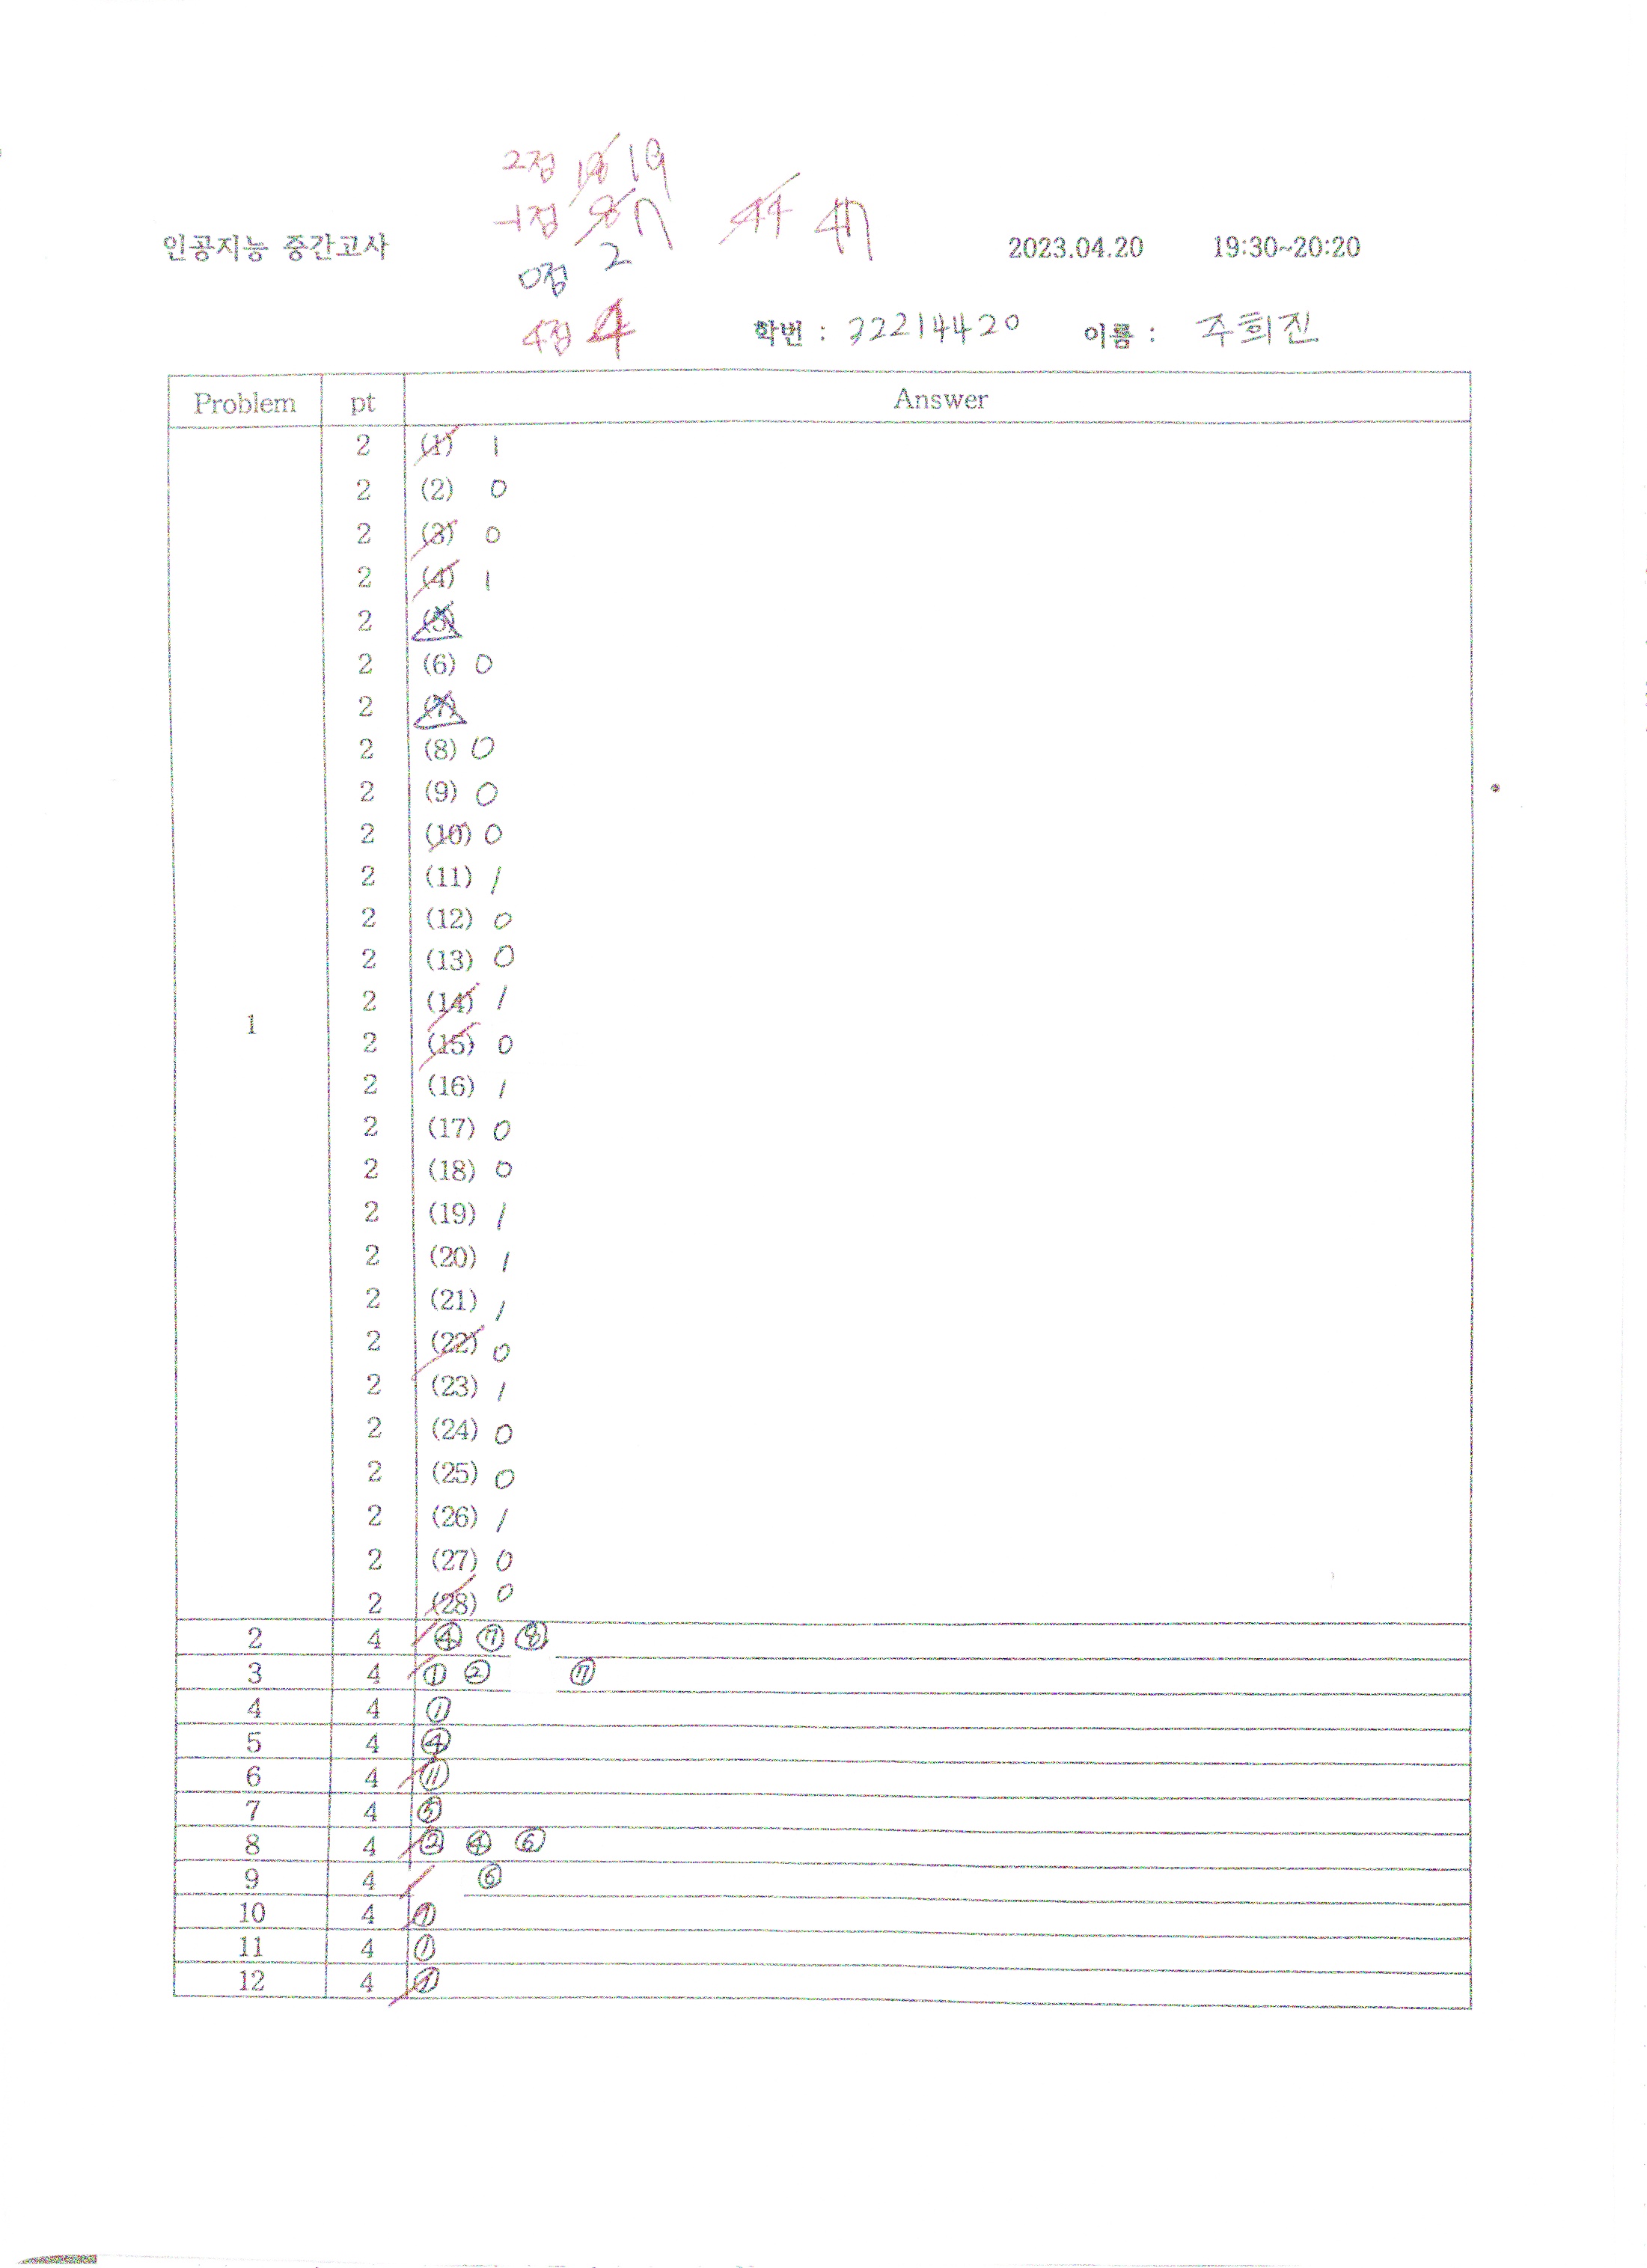 2점 18 19
-1점 8 7 44 47
인공지능 중간고사 2023.04.20 19:30~20:20
0점 2
4점 4 학번 : 32214420 이름 : 주희진
Problem pt Answer
2 (1) 1
2 (2) 0
2 (3) 0
2 (4) 1
2 (5)
2 (6) 0
2 (7)
2 (8) 0
2 (9) 0
2 (10) 0
2 (11) 1
2 (12) 0
2 (13) 0
2 (14) 1
1
2 (15) 0
2 (16) 1
2 (17) 0
2 (18) 0
2 (19) 1
2 (20) 1
2 (21) 1
2 (22) 0
2 (23) 1
2 (24) 0
2 (25) 0
2 (26) 1
2 (27) 0
2 (28) 0
2 4 ④ ⑦ ⑧
3 4 ① ② ⑦
4 4 ①
5 4 ④
6 4 ⑪
7 4 ⑤
8 4 ② ④ ⑥
9 4 ⑥
10 4 ①
11 4 ①
12 4 ①